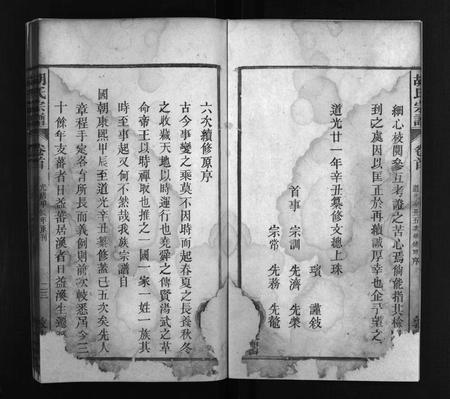 胡氏宗譜
卷首
細心校閱參互考證之苦心焉倘能指其檢
到之處因以匡正於再續誠厚幸也企予望之
道光廿一年辛丑纂修支總上珠
璸 謹敍
首事 宗訓 先濟 先榮
宗常 先務 先龍
六次續修原序
古今事變之乘莫不因時而起春夏之長養秋冬
之收藏天地以時運行也堯舜之傳賢湯武之革
命帝王以時禪取也推之一國一家一姓一族其
時至事起又何不然哉我族宗譜自
國朝康熙甲辰至道光辛丑纂修蓋已五次矣先人
章程手定各有所長而義例則前次較悉屆今三
十餘年支蕃者日益蕃居漢者日益漢生遷
胡氏宗譜
卷首
二三